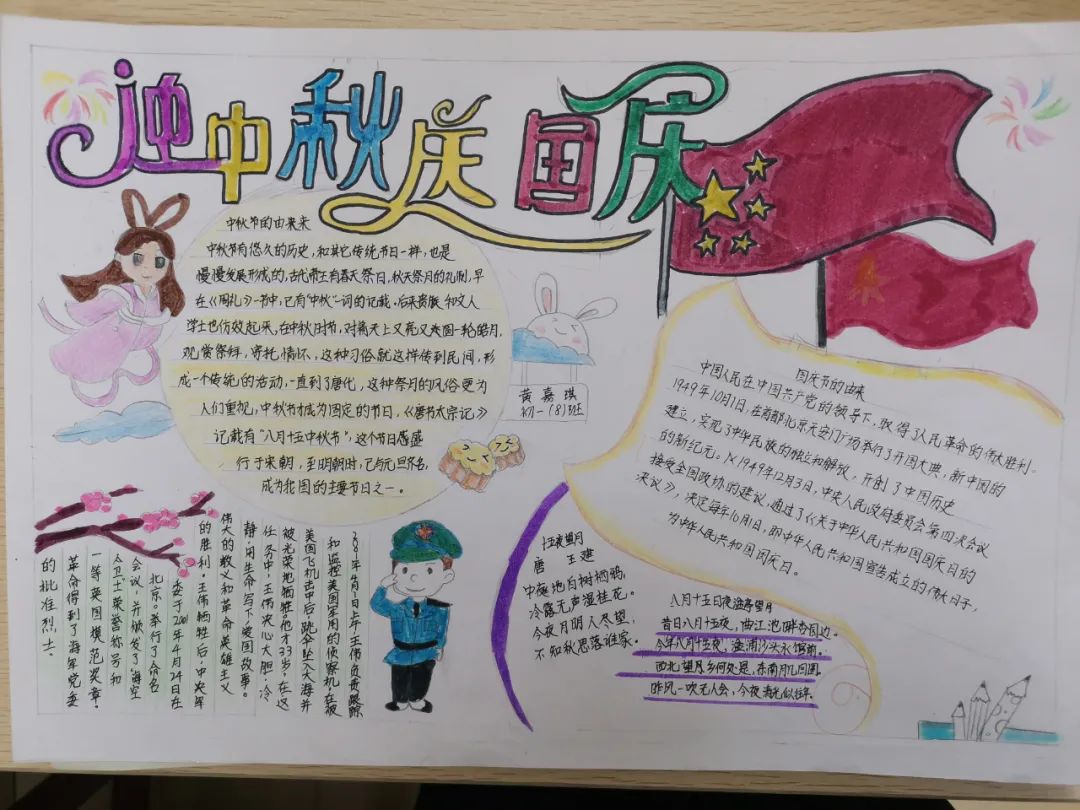 迎中秋庆国庆
中秋节的由来来
中秋节有悠久的历史,和其它传统节日一样,也是
慢慢发展形成的,古代帝王有春天祭日,秋天祭月的礼制,早
在《周礼》一书中,已有"中秋"一词的记载,后来贵族和文人
学士也仿效起来,在中秋时节,对着天上又亮又圆一轮皓月,
观赏祭拜,寄托情怀,这种习俗就这样传到民间,形
成一个传统的活动,一直到了唐代,这种祭月的风俗更为
人们重视,中秋节才成为固定的节日,《唐书太宗记》
记载有"八月十五中秋节",这个节日盛
行于宋朝,至明朝时,已与元旦齐名,
成为我国的主要节日之一。
黄嘉琪
初一(8)班
国庆节的由来
中国人民在中国共产党的领导下,取得了人民革命的伟大胜利。
1949年10月1日,在首都北京天安门广场举行了开国大典,新中国的
建立,实现了中华民族的独立和解放,开创了中国历史
的新纪元。1949年12月3日,中央人民政府委员会第四次会议
接受全国政协的建议,通过了《关于中华人民共和国国庆日的
决议》,决定每年10月1日,即中华人民共和国宣告成立的伟大日子,
为中华人民共和国国庆日。
年4月1日上午王伟负责跟踪
和监控美国军用的侦察机,在被
美国飞机击中后,跳伞坠入大海并
被光荣地牺牲,他才33岁,在这
任务中,王伟决心大胆,冷
静,用生命写下了爱国故事。
伟大的教义和革命英雄主义
的胜利,王伟牺牲后,中央军
委于2001年4月24日在
北京。举行了命名
会议,并被发了海空
卫士荣誉称号和
一等英国模范奖章,
革命得到了海军党委
的批准烈士。
十五夜望月
唐 王建
中庭地白树栖鸦,
冷露无声湿桂花。
今夜月明人尽望,
不知秋思落谁家。
八月十五日夜湓亭望月
昔日八月十五夜,曲江池畔杏园边。
今年八月十五夜,湓浦沙头水馆前。
西北望乡何处是,东南见月几回圆。
昨风一吹无人会,今夜清光似往年。